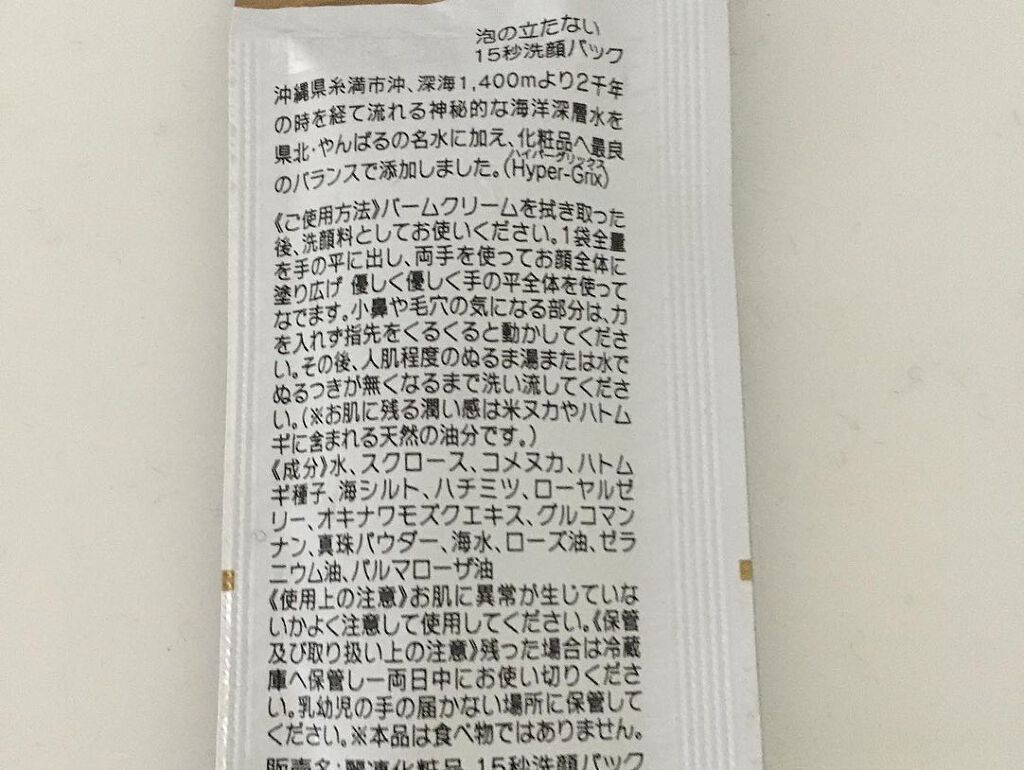 泡の立たない
15秒洗顔パック
沖縄県糸満市沖、深海1,400mより2千年
の時を経て流れる神秘的な海洋深層水を
県北・やんばるの名水に加え、化粧品へ最良
ハイパーグリックス
のバランスで添加しました。(Hyper-Grix)
《ご使用方法》バームクリームを拭き取った
後、洗顔料としてお使いください。1袋全量
を手の平に出し、両手を使ってお顔全体に
塗り広げ 優しく優しく手の平全体を使って
なでます。小鼻や毛穴の気になる部分は、力
を入れず指先をくるくると動かしてくださ
い。その後、人肌程度のぬるま湯または水で
ぬるつきが無くなるまで洗い流してくださ
い。(※お肌に残る潤い感は米ヌカやハトム
ギに含まれる天然の油分です。)
《成分》水、スクロース、コメヌカ、ハトム
ギ種子、海シルト、ハチミツ、ローヤルゼ
リー、オキナワモズクエキス、グルコマン
ナン、真珠パウダー、海水、ローズ油、ゼラ
ニウム油、パルマローザ油
《使用上の注意》お肌に異常が生じていな
いかよく注意して使用してください。《保管
及び取り扱い上の注意》残った場合は冷蔵
庫へ保管し一両日中にお使い切りくださ
い。乳幼児の手の届かない場所に保管して
ください。※本品は食べ物ではありません。
販売名:麗凍化粧品 15秒洗顔パック